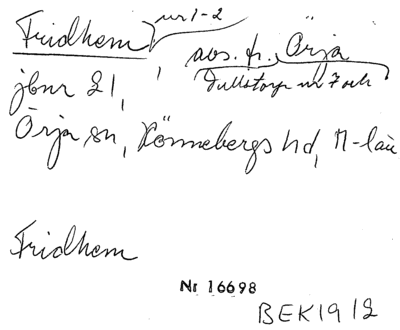 Fridhem nr 1-2, avs. fr. Örja
Dullstorp nr 7 och
jbnr 21,
Örja sn, Rönnebergs hd, M-län
Fridhem
Nr 16698
BEK 1912